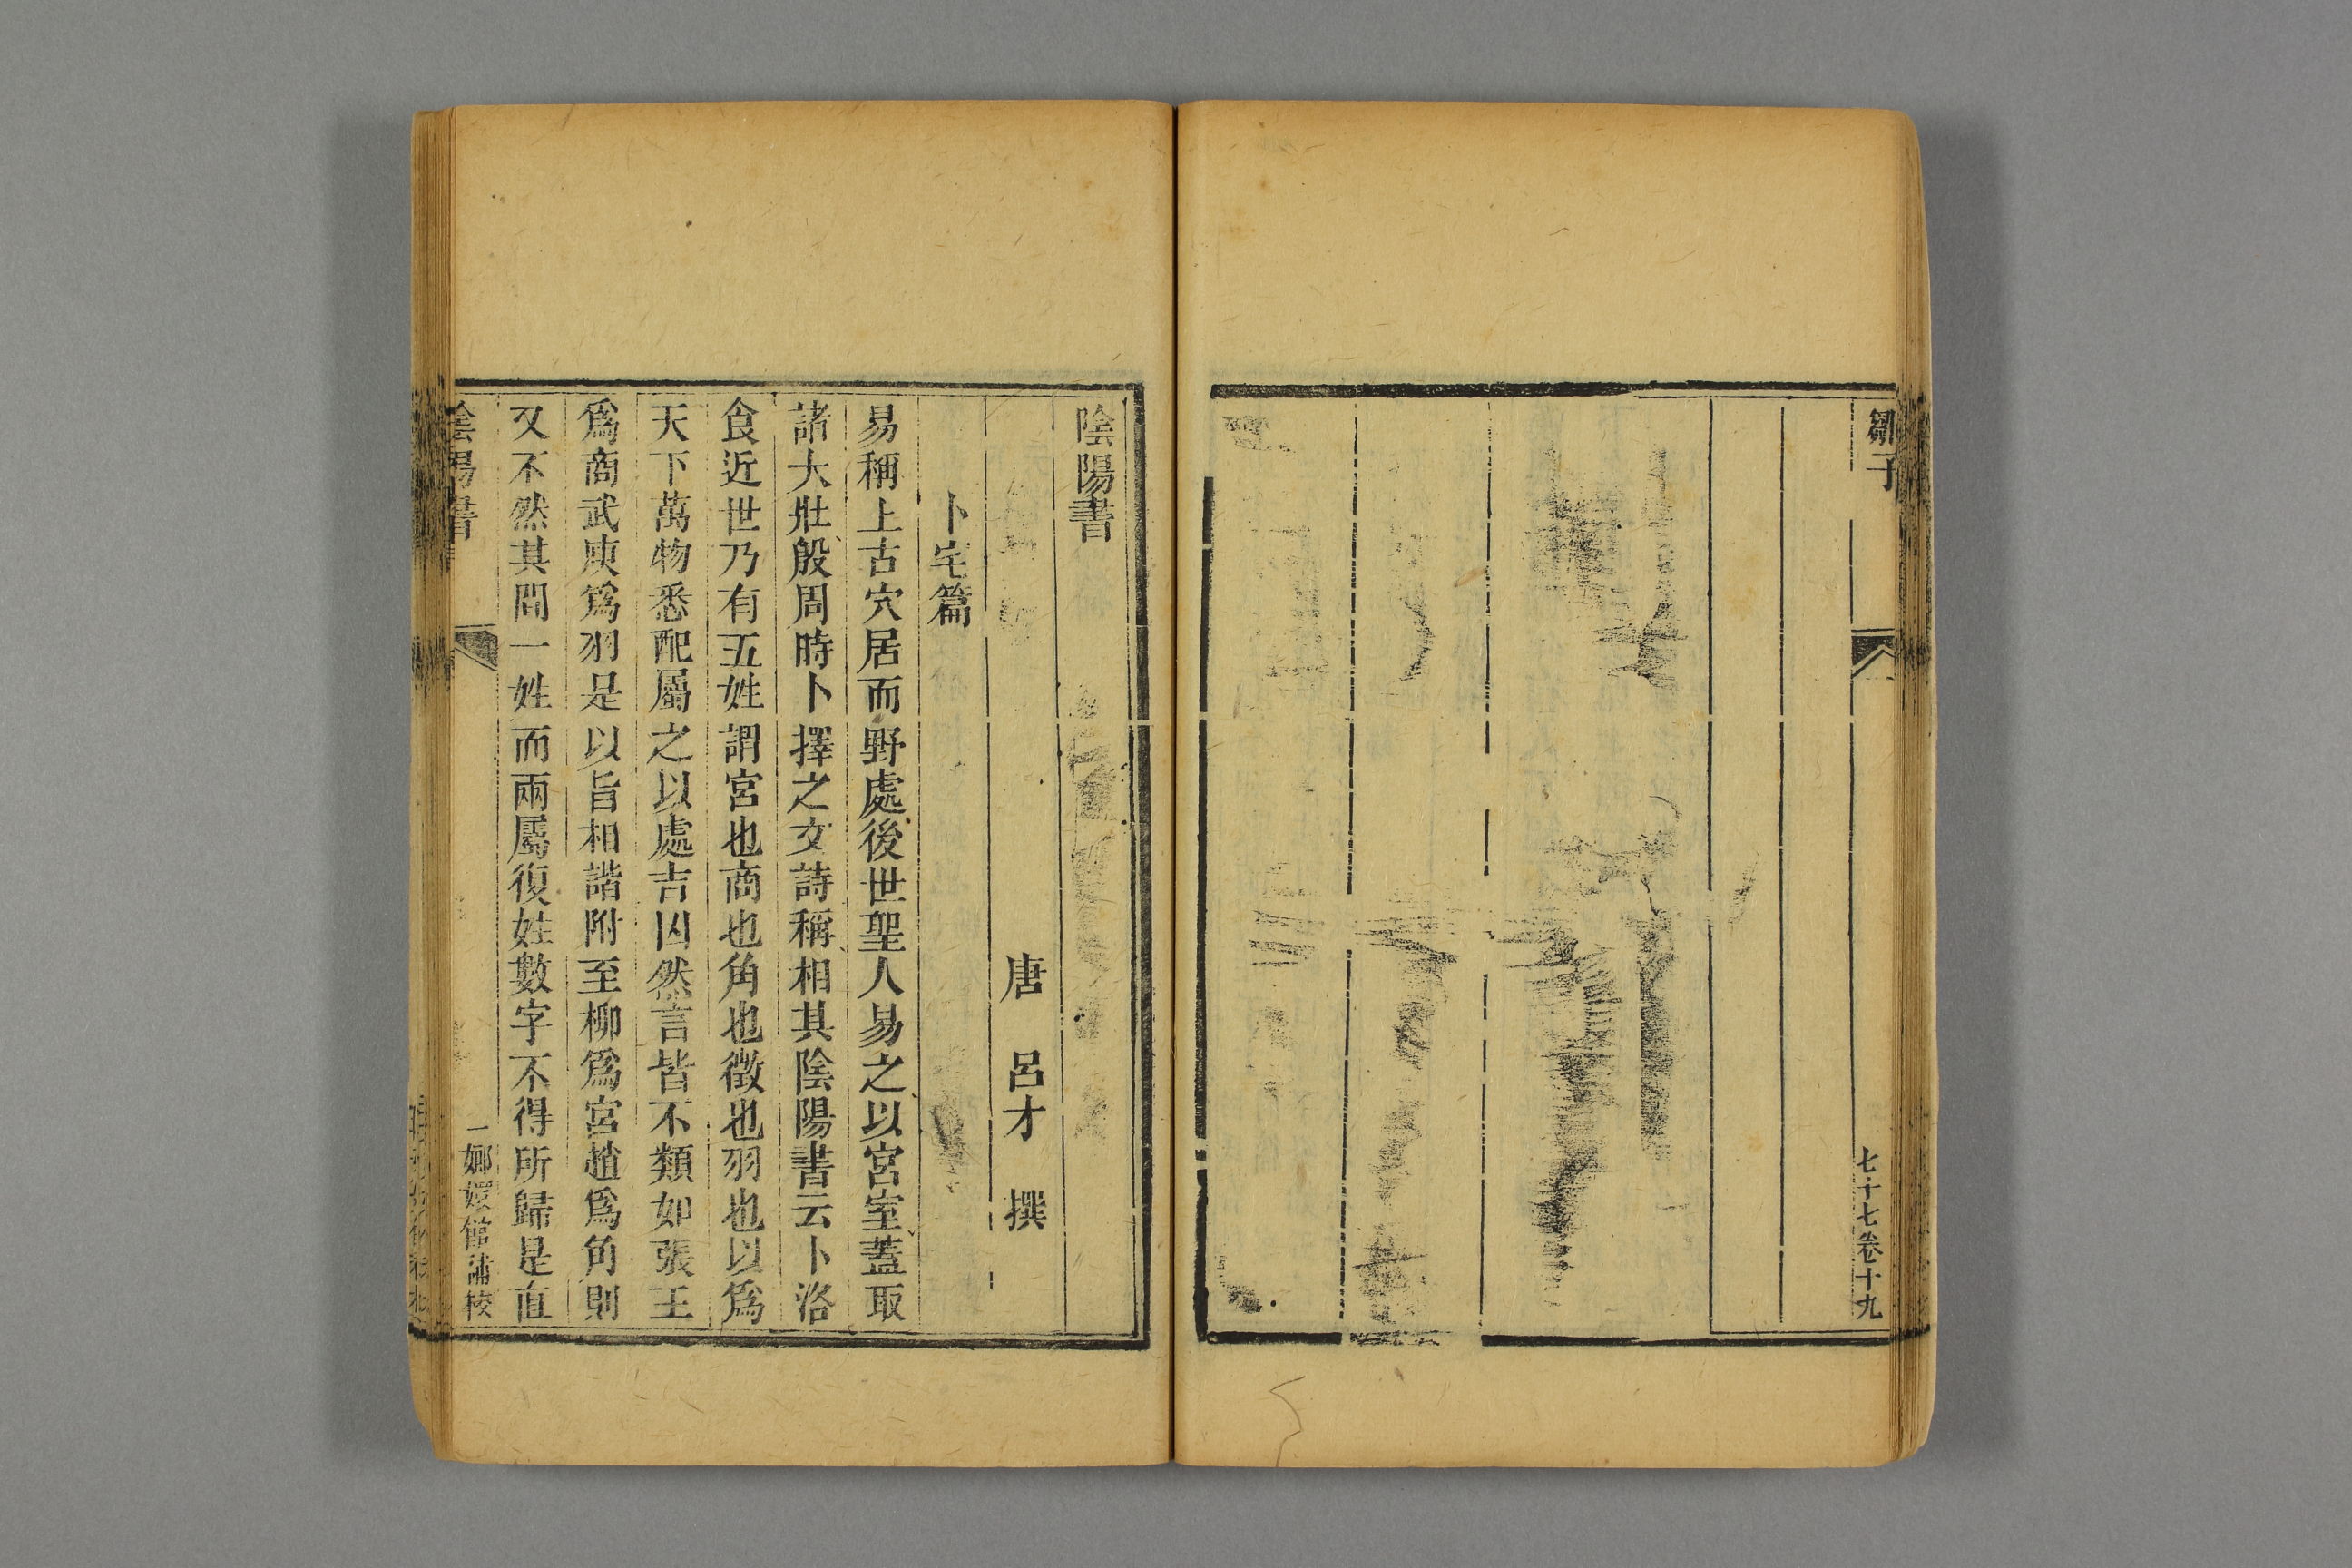 鄒子
七十七卷十九
陰陽書
唐 呂才 撰
卜宅篇
易稱上古穴居而野處後世聖人易之以宮室蓋取
諸大壯殷周時卜擇之文詩稱相其陰陽書云卜洛
食近世乃有五姓謂宮也商也角也徵也羽也以爲
天下萬物悉配屬之以處吉凶然言皆不類如張王
爲商武庾爲羽是以旨相諧附至柳爲宮趙爲角則
又不然其間一姓而兩屬復姓數字不得所歸是直
陰陽書
一嫏嬛館補校